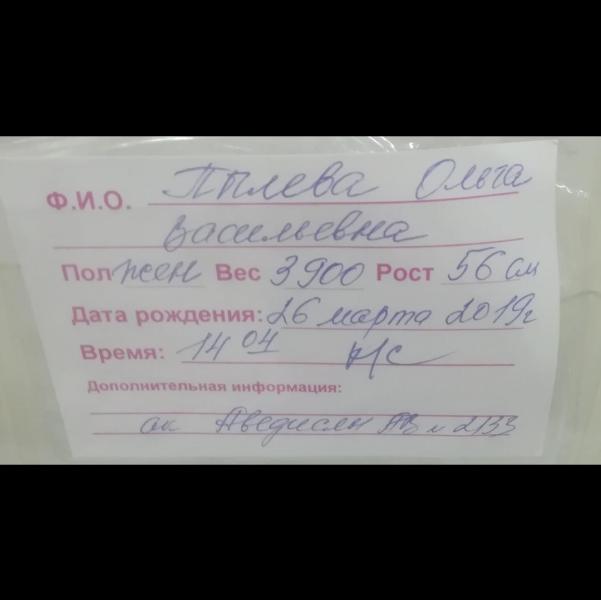 Ф.И.О. Пылева Ольга
Васильевна
Пол жен Вес 3900 Рост 56 см
Дата рождения: 26 марта 2019г
Время: 14 04
Дополнительная информация:
ак Аведисян № 2133